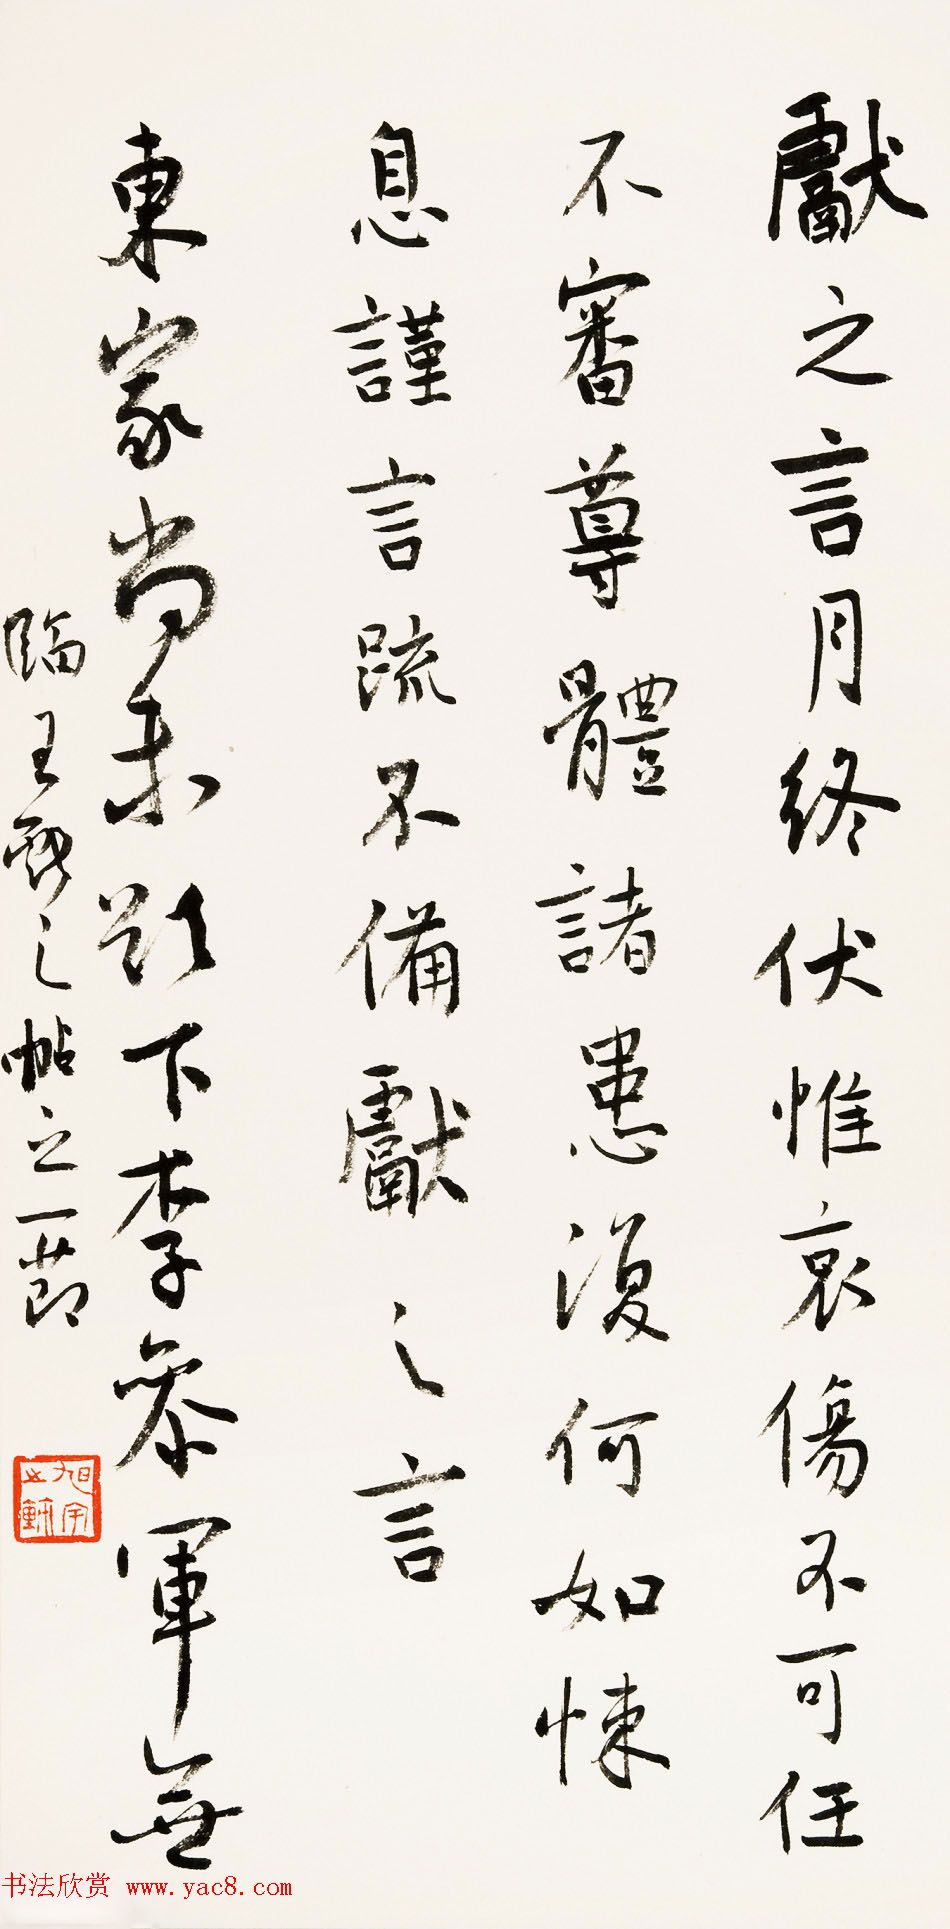 獻之言月終伏惟哀傷不可任
不審尊體諸患復何如悚
息謹言疏不備獻之言
東家尚未欵下李參軍無
臨王獻之帖之一節
旭宇
之鉥
书法欣赏 www.yac8.com